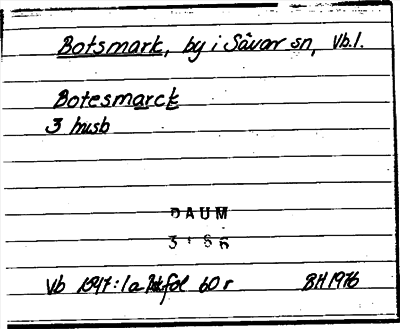 Botsmark, by i Sävar sn, Vb.l.
Botesmarck
3 husb
DAUM
Vb 1547:1a fol 60 r BH 1976